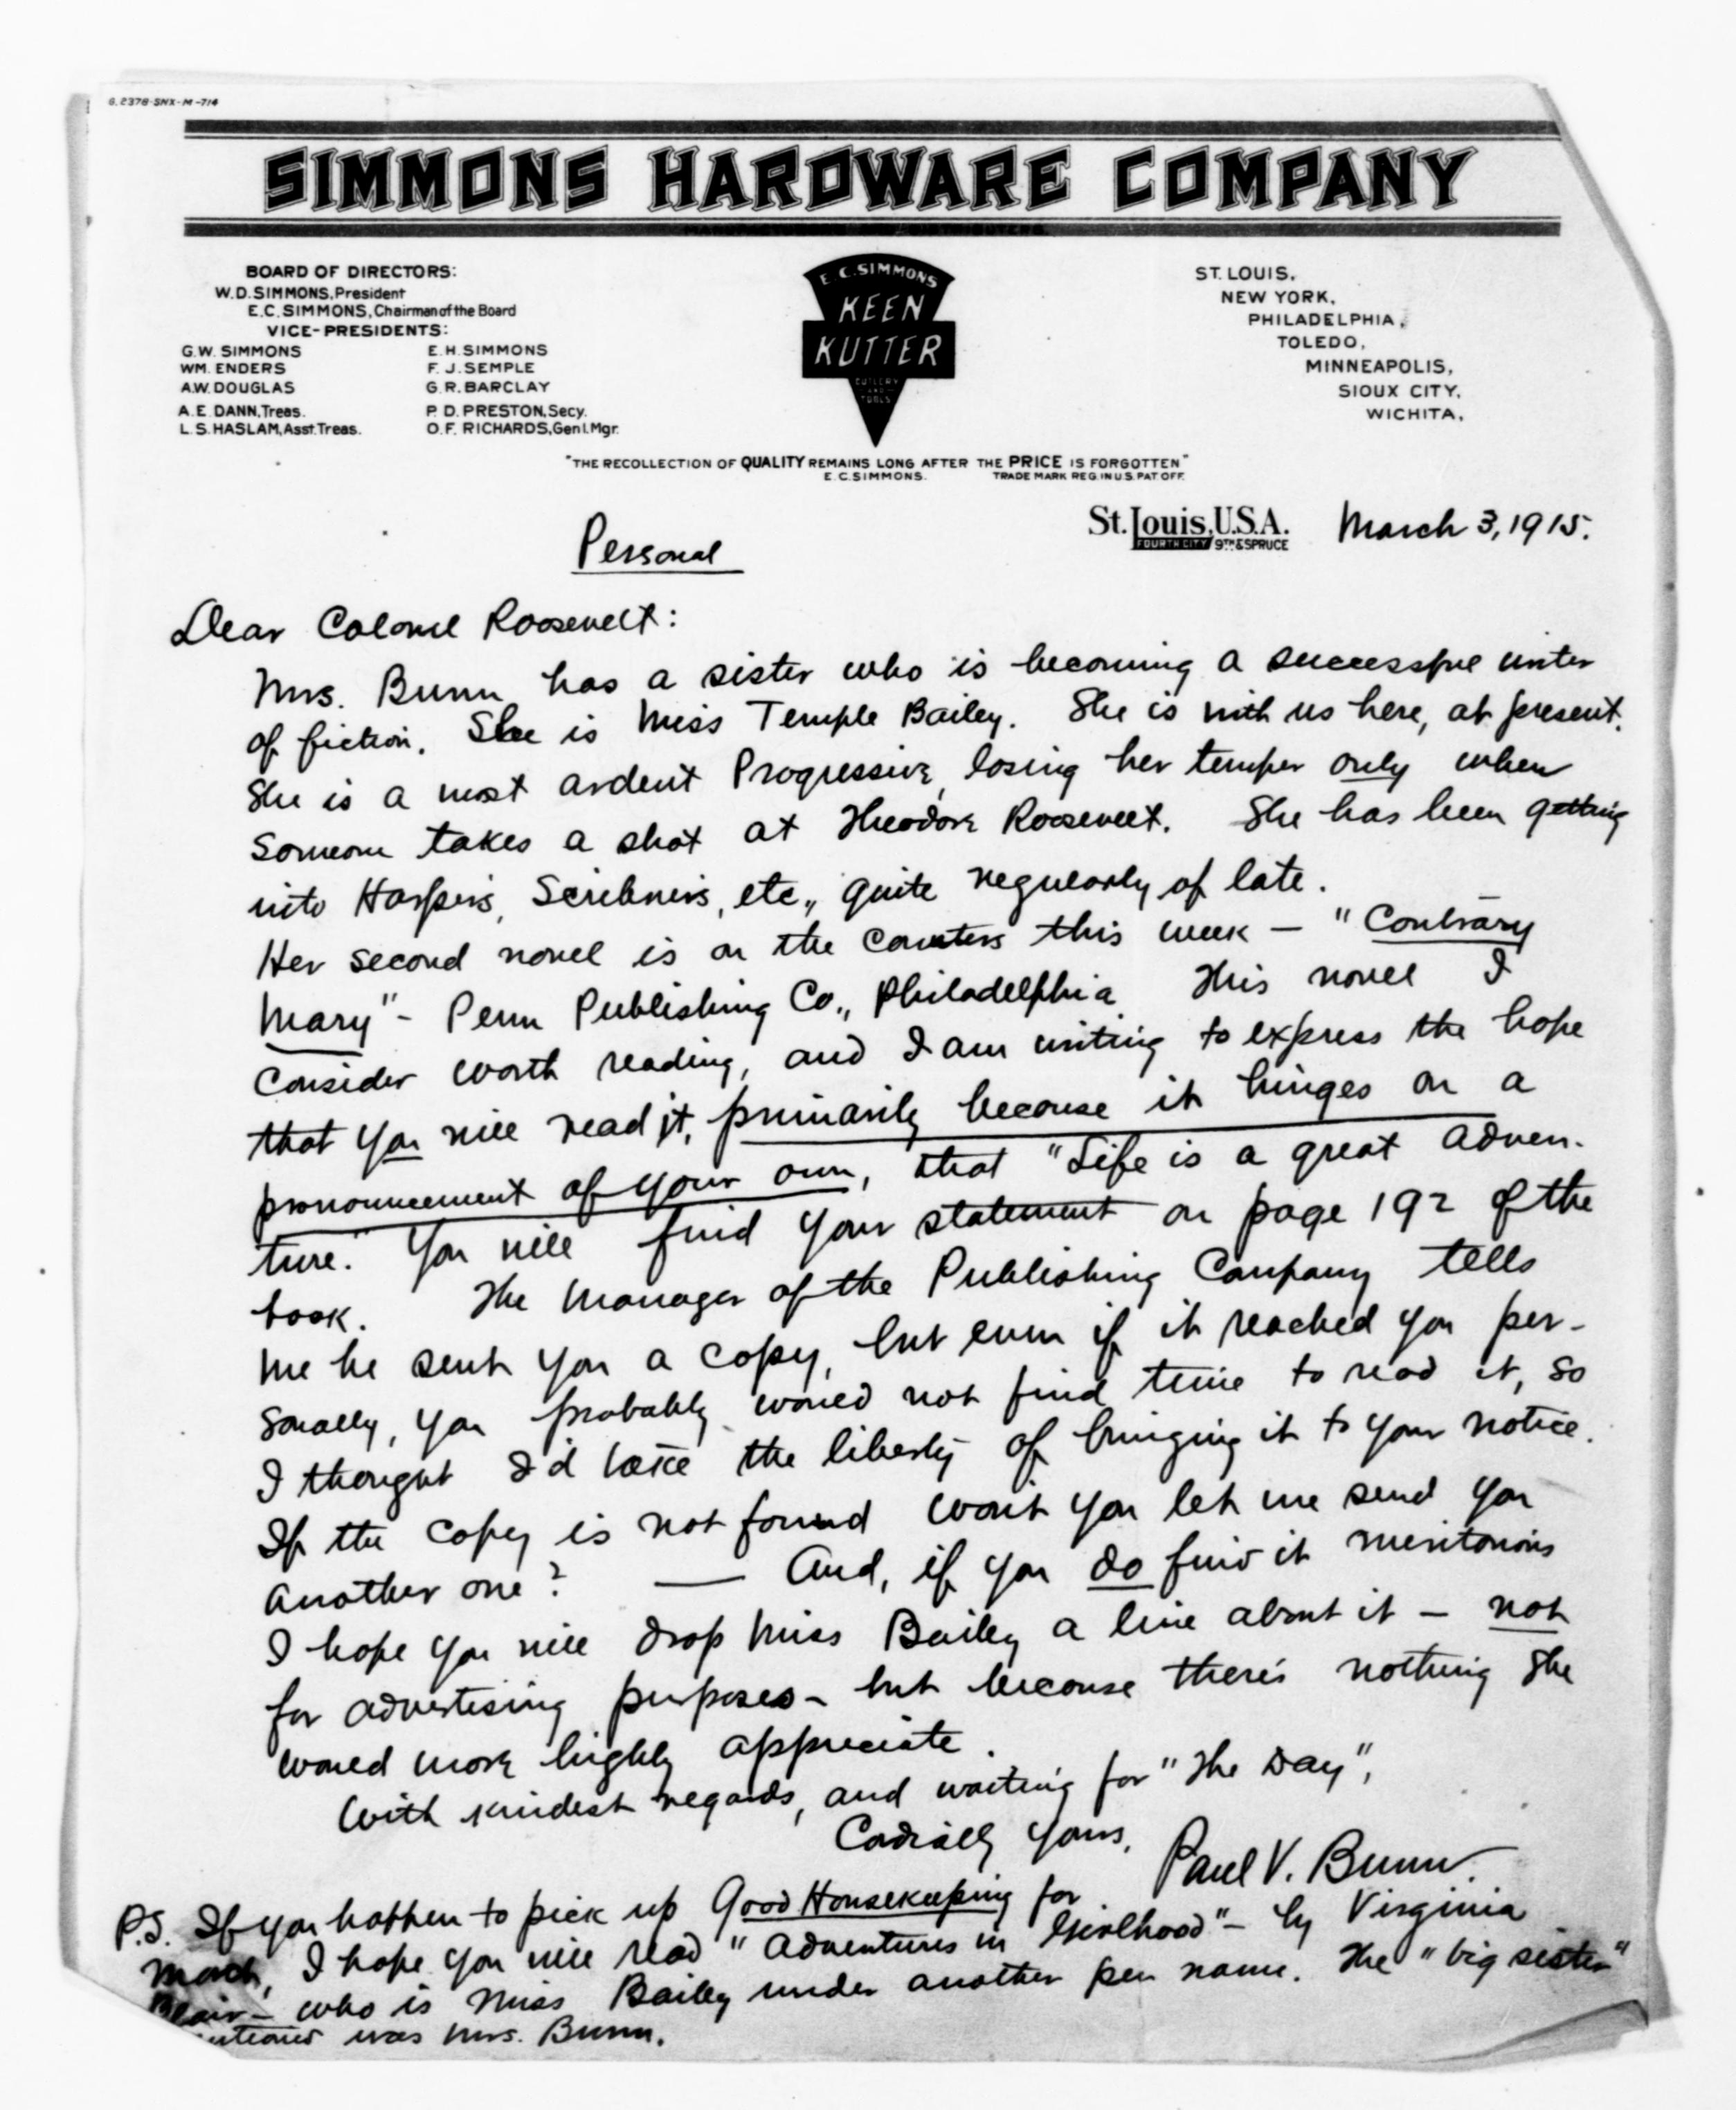 G.2378-SNX-M-714
SIMMONS HARDWARE COMPANY
BOARD OF DIRECTORS:
W.D. SIMMONS, President
E.C. SIMMONS, Chairman of the Board
VICE-PRESIDENTS:
G.W. SIMMONS E.H. SIMMONS
WM. ENDERS F. J. SEMPLE
A.W. DOUGLAS G.R. BARCLAY
A.E. DANN, Treas. P. D. PRESTON, Secy.
L.S. HASLAM, Asst. Treas. O.F. RICHARDS, Genl. Mgr.
E.C. SIMMONS
KEEN
KUTTER
CUTLERY
AND
TOOLS
ST. LOUIS,
NEW YORK,
PHILADELPHIA,
TOLEDO,
MINNEAPOLIS,
SIOUX CITY,
WICHITA,
"THE RECOLLECTION OF QUALITY REMAINS LONG AFTER THE PRICE IS FORGOTTEN"
E.C. SIMMONS. TRADE MARK REG. IN U.S. PAT OFF.
St. Louis, U.S.A. March 3, 1915.
FOURTH CITY 9TH & SPRUCE
Personal
Dear Colonel Roosevelt:
Mrs. Bunn has a sister who is becoming a successful writer
of fiction. She is Miss Temple Bailey. She is with us here, at present.
She is a most ardent Progressive, losing her temper only when
someone takes a shot at Theodore Roosevelt. She has been getting
into Harper's, Scribner's, etc., quite regularly of late.
Her second novel is on the counters this week — "Contrary
Mary" - Penn Publishing Co., Philadelphia This novel I
consider worth reading, and I am writing to express the hope
that you will read it, primarily because it hinges on a
pronouncement of your own, that "Life is a great adven-
ture." You will find your statement on page 192 of the
book. The Manager of the Publishing Company tells
me he sent you a copy, but even if it reached you per-
sonally, you probably would not find time to read it, so
I thought I'd take the liberty of bringing it to your notice.
If the copy is not found won't you let me send you
another one? — And, if you do find it meritorious
I hope you will drop Miss Bailey a line about it — not
for advertising purposes - but because there's nothing she
would more highly appreciate.
With kindest regards, and waiting for "The Day",
Cordially yours,
Paul V. Bunn.
P.S. If you happen to pick up Good Housekeeping for
March, I hope you will read "Adventures in Girlhood" - by Virginia
Blair - who is Miss Bailey under another pen name. The "big sister"
was Mrs. Bunn.